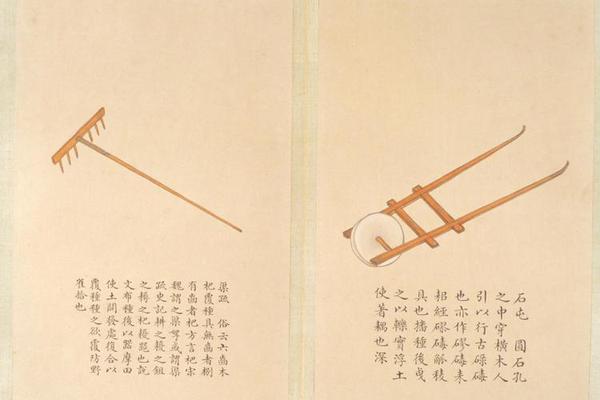 石屯 圓石孔
之中穿橫木人
引以行古碌碡
也亦作磟碡耒
耜經磟碡觚稜
具也播種後曳
之以轢實浮土
使著耦也深
渠疏 俗云六齒木
杷覆種具無齒者捌
有齒者杷方言杷宋
魏謂之渠挐或謂渠
疏史記耕之耰之鉏
之耨之杷耰器也說
文布種後以器摩田
使土開發處復合以
覆種種之欲覆防野
雀拾也